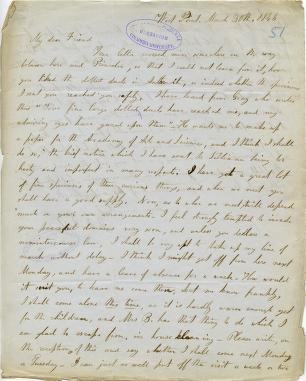 West Point, March 30th, 1844
51
HERBARIUM
COLUMBIA UNIVERSITY
My dear Friend
Your letter missed me somewhere on the way
between here and Princeton, so that I could not learn from it, how
you liked the defect duels in, or indeed whether the specimens
I sent you reached you safely. I have heard from Gray who writes
this "Two fine large slabs have reached me, and my
admiring eyes have gazed upon them". He wants me to make up
a paper for the Academy of Art and Sciences, and I think I shall
do so, the brief notice which I have sent to Silliman being too
hasty and imperfect in many respects. I have got a great lot
of fine specimens of these curious things, and when we meet you
shall have a good supply. Now, as to when we meet, this depends
much on your own arrangements. I feel strongly tempted to invade
your peaceful dominions very soon, and unless you show a
I shall be very apt to take up my line of
march without delay. I think I might get off from here next
Monday, and have a leave of absence for a week. How would
it suit you to have me come then, just me know frankly,
I shall come alone this time, as it is hardly warm enough yet
for the children, and Mrs B. has that thing to do which I
am glad to escape from, in house cleaning. Please write, on
the reception of this and say whether I shall come next Monday
or Tuesday. I can just as well put off the visit a week or two